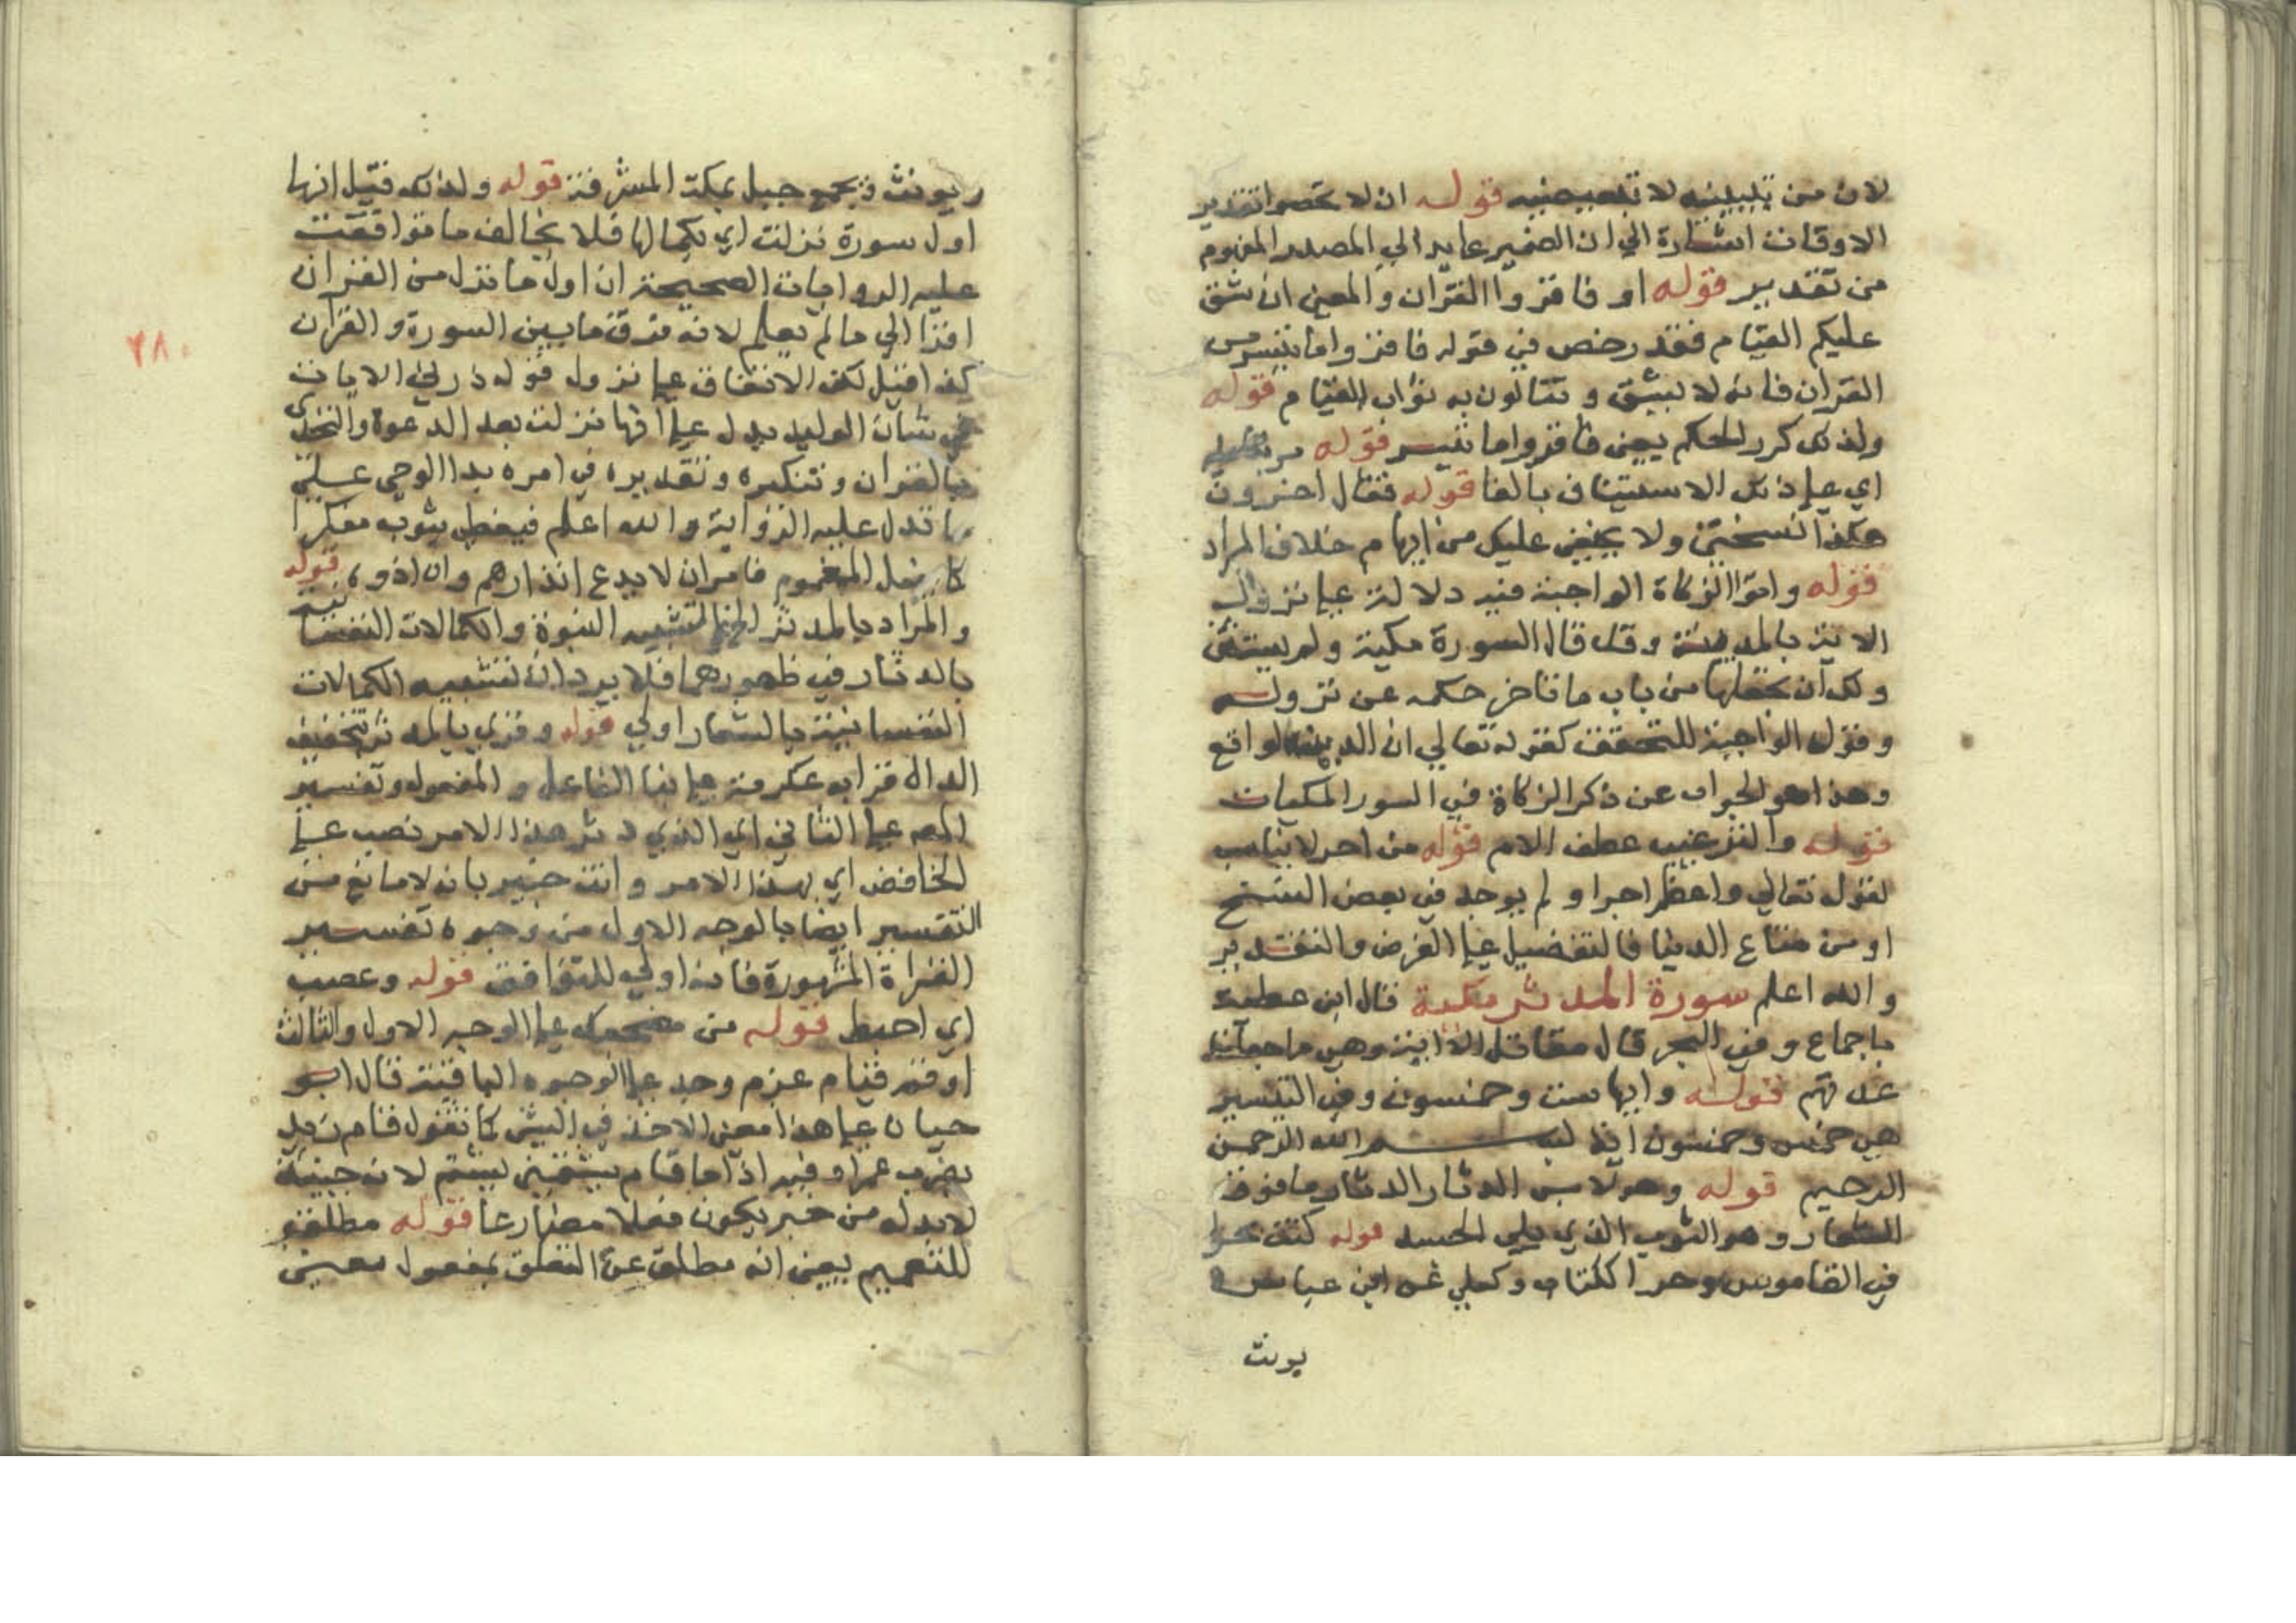 لان من تبيينيه لا تبعيضيه قوله ان لا تحصوا تقدير
الاوقات اشارة الي ان الضمير عايد الي المصدر المفهوم
من تقدير قوله او فاقروا القران والمعني ان شق
عليكم القيام فقد رخص في قوله فاقروا ما تيسر من
القران فانه لا يشق وتنالون به ثواب القيام قوله
ولذلك كرر الحكم يعني فاقروا ما تيسر قوله مرتبا عليه
اي علي ذلك الاستيناف بالفا قوله فقال اخرون
هكذا نسختي ولا يخفي عليك من ايهام خلاف المراد
قوله واتوا الزكاة الواجبة فيه دلالة علي نزول
الاية بالمدينة وقد قال السورة مكية ولم يستثن
ولك ان تجعلها من باب ما تاخر حكمه عن نزوله
وقوله الواجبة للتحقق كقوله تعالي ان الدين لواقع
وهذا هو الجواب عن ذكر الزكاة في السور المكيات
قوله والترغيب عطف الام قوله من اجر لا يناسب
لقوله تعالي واعظم اجرا ولم يوجد في بعض النسخ
او من متاع الدنيا فالتفضيل علي الفرض والتقدير
والله اعلم سورة المدثر مكية قال ابن عطية
باجماع وفي البحر قال مقاتل الا اية وهي ما جعلنا
عدتهم قوله وايها ست وخمسون وفي التيسير
هي خمس وخمسون اية بسم الله الرحمن
الرحيم قوله وهو لابس الدثار الدثار ما فوق
الشعار وهو الثوب الذي يلي الجسد قوله كنت بحرا
في القاموس وحرا ككتاب وكعلي عن ابن عباس
يونث
ويونث ويجمع جبل بمكة المشرفة قوله ولذلك قيل انها
اول سورة نزلت اي بكمالها فلا يخالف ما توافقت
عليه الروايات الصحيحة ان اول ما نزل من القران
اقرا الي ما لم يعلم لانه فرق ما بين السورة والقران
كذا قيل لكن الاتفاق علي نزول قوله ذرني الايات
في شان الوليد يدل علي انها نزلت بعد الدعوة والتحدي
بالقران وتفكيره وتقديره في امره بدا الوحي علي
ما تدل عليه الرواية والله اعلم فيغطي بثوب مفكرا
كما يفعل المغموم فامر ان لا يدع انذارهم وان اذوه قوله
والمراد بالمدثر الخ تشبيه النبوة والكمالات النفسانية
بالدثار في ظهورهما فلا يرد ان تشبيه الكمالات
النفسانية بالشعار اولي قوله وقري بالمدثر بتخفيف
الدال قرا به عكرمة علي بنا الفاعل والمفعول وتفسير
المص علي الثاني اي الذي دثر هذا الامر نصب علي
الخافض اي بهذا الامر وانت خبير بان لا مانع من
التفسير ايضا بالوجه الاول من وجوه تفسير
القراة المشهورة فانه اولي للتوافق قوله وعصب
اي احيط قوله من مضجعك علي الوجه الاول والثالث
او قم قيام عزم وجد علي الوجوه الباقية قال ابو
حيان علي هذا معني الاخذ في الشي كما تقول قام زيد
يضرب عمرا وفيه اذا ما قام يشتمني ليشتم لان جيئة
لابد له من خبر يكون فعلا مضارعا قوله مطلق
للتعميم يعني انه مطلق عن التعلق بمفعول معين